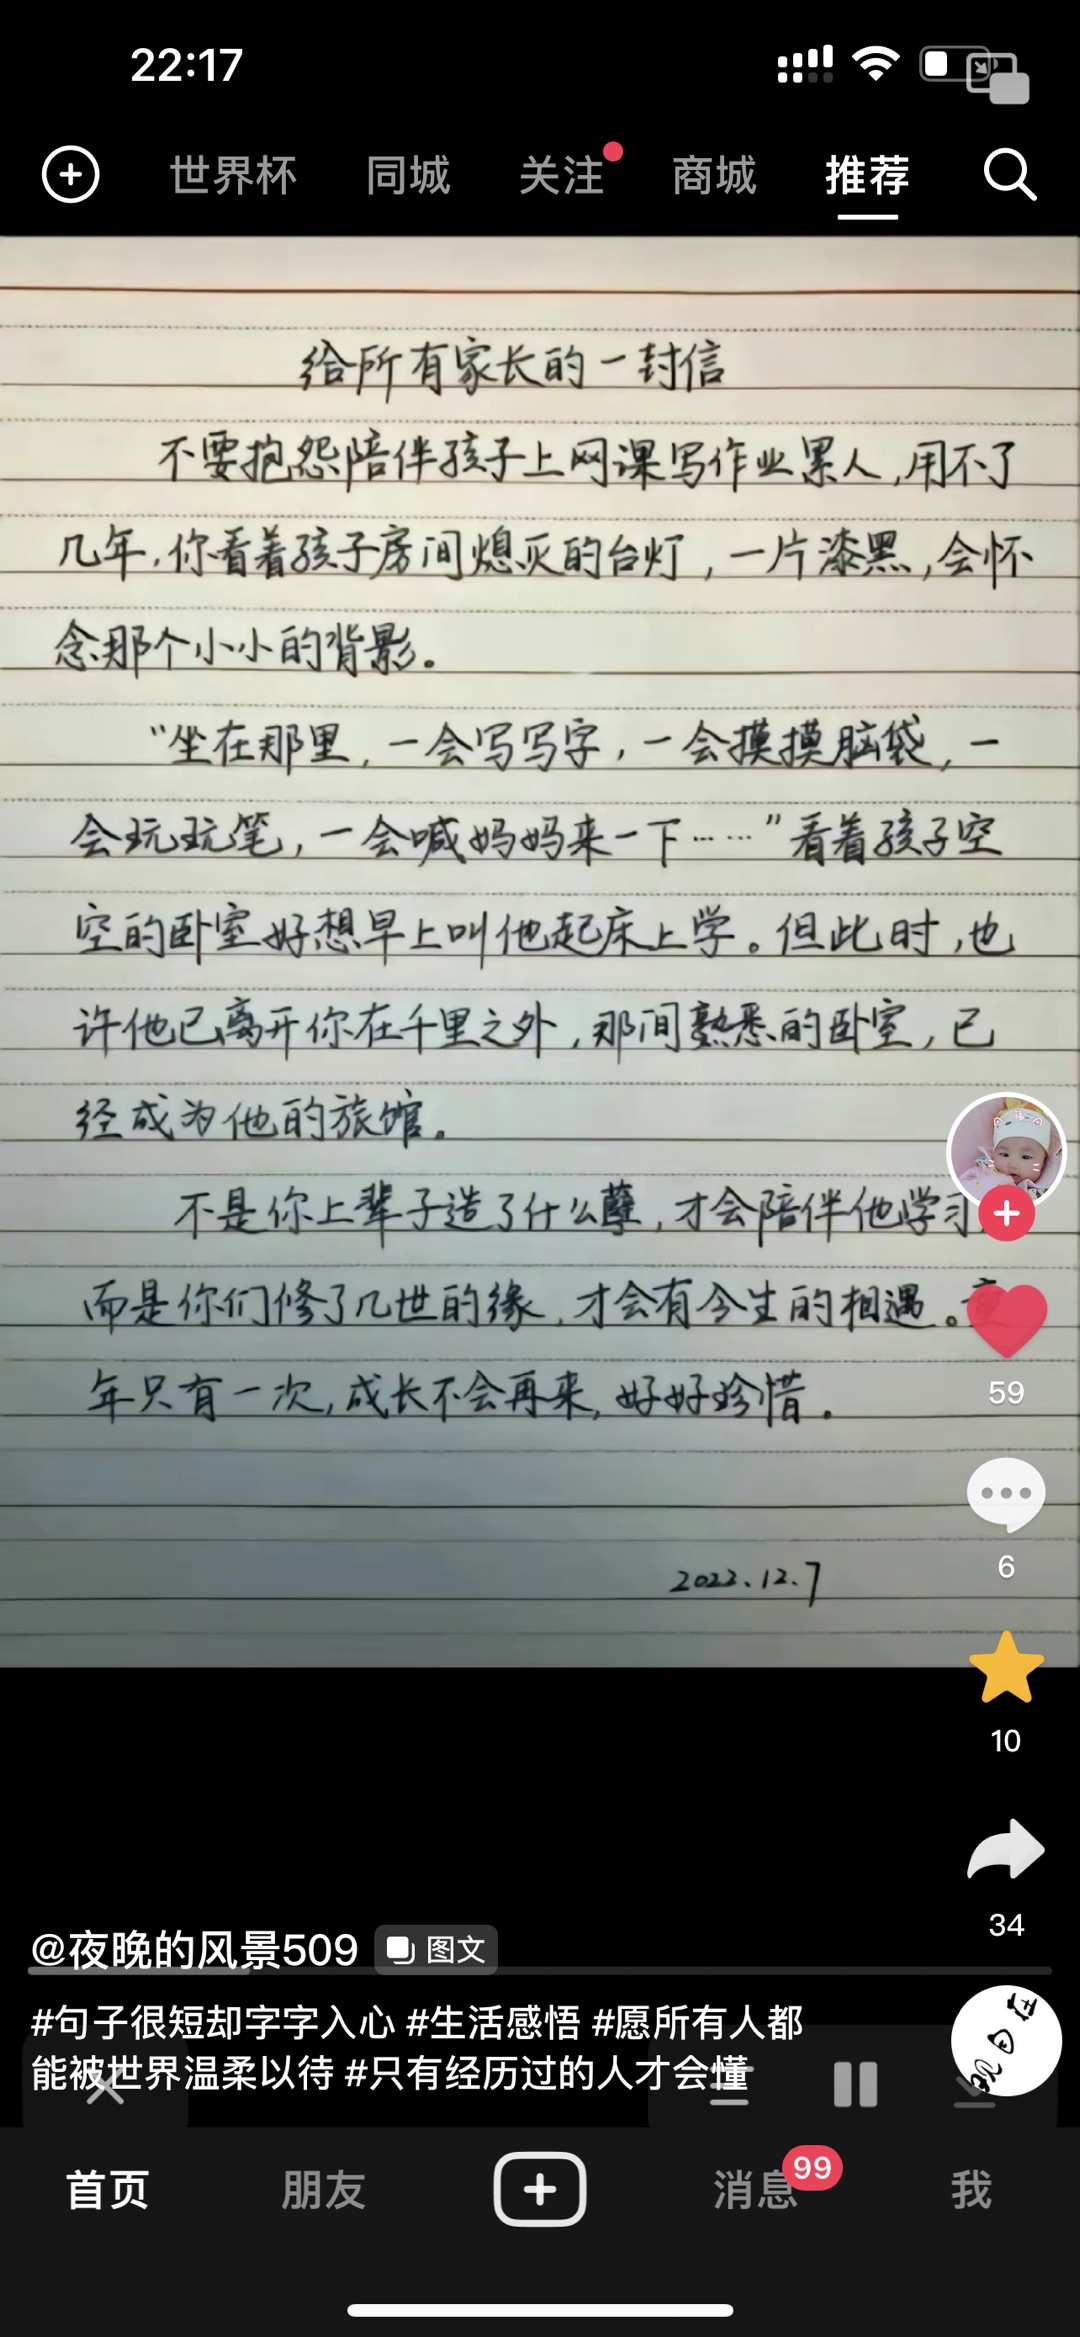 22:17
世界杯 同城 关注 商城 推荐
给所有家长的一封信
不要抱怨陪伴孩子上网课写作业累人,用不了
几年,你看着孩子房间熄灭的台灯,一片漆黑,会怀
念那个小小的背影。
“坐在那里,一会写写字,一会摸摸脑袋,一
会玩玩笔,一会喊妈妈来一下……”看着孩子空
空的卧室好想早上叫他起床上学。但此时,也
许他已离开你在千里之外,那间熟悉的卧室,已
经成为他的旅馆。
不是你上辈子造了什么孽,才会陪伴他学习
而是你们修了几世的缘,才会有今生的相遇。
年只有一次,成长不会再来,好好珍惜。
2022.12.7
59
6
10
34
@夜晚的风景509 图文
#句子很短却字字入心 #生活感悟 #愿所有人都
能被世界温柔以待 #只有经历过的人才会懂
首页 朋友 消息 99 我